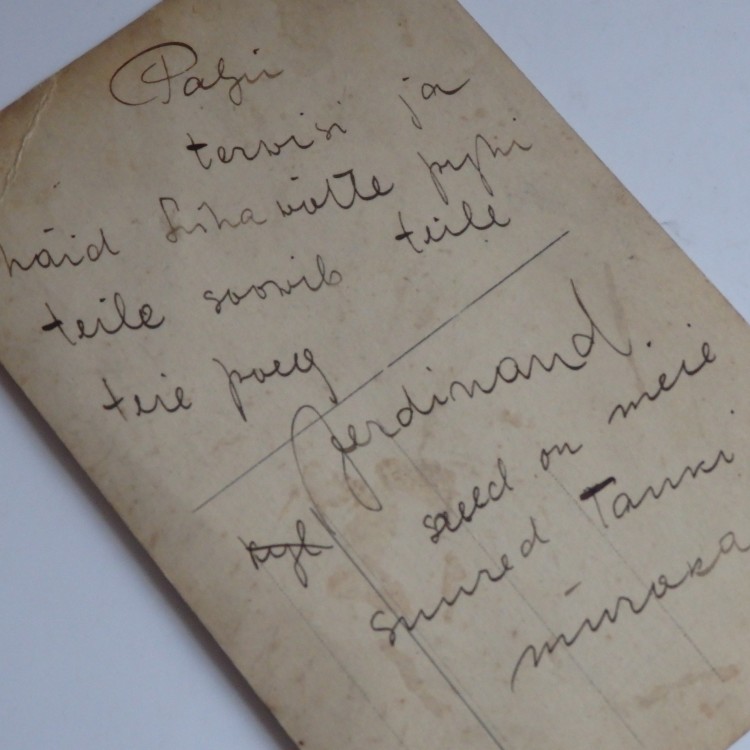 Palju
terwisi ja
häid lihawõtte pyhi
teile soowib teile
teie poeg
Ferdinand.
need on meie
suured Tanki